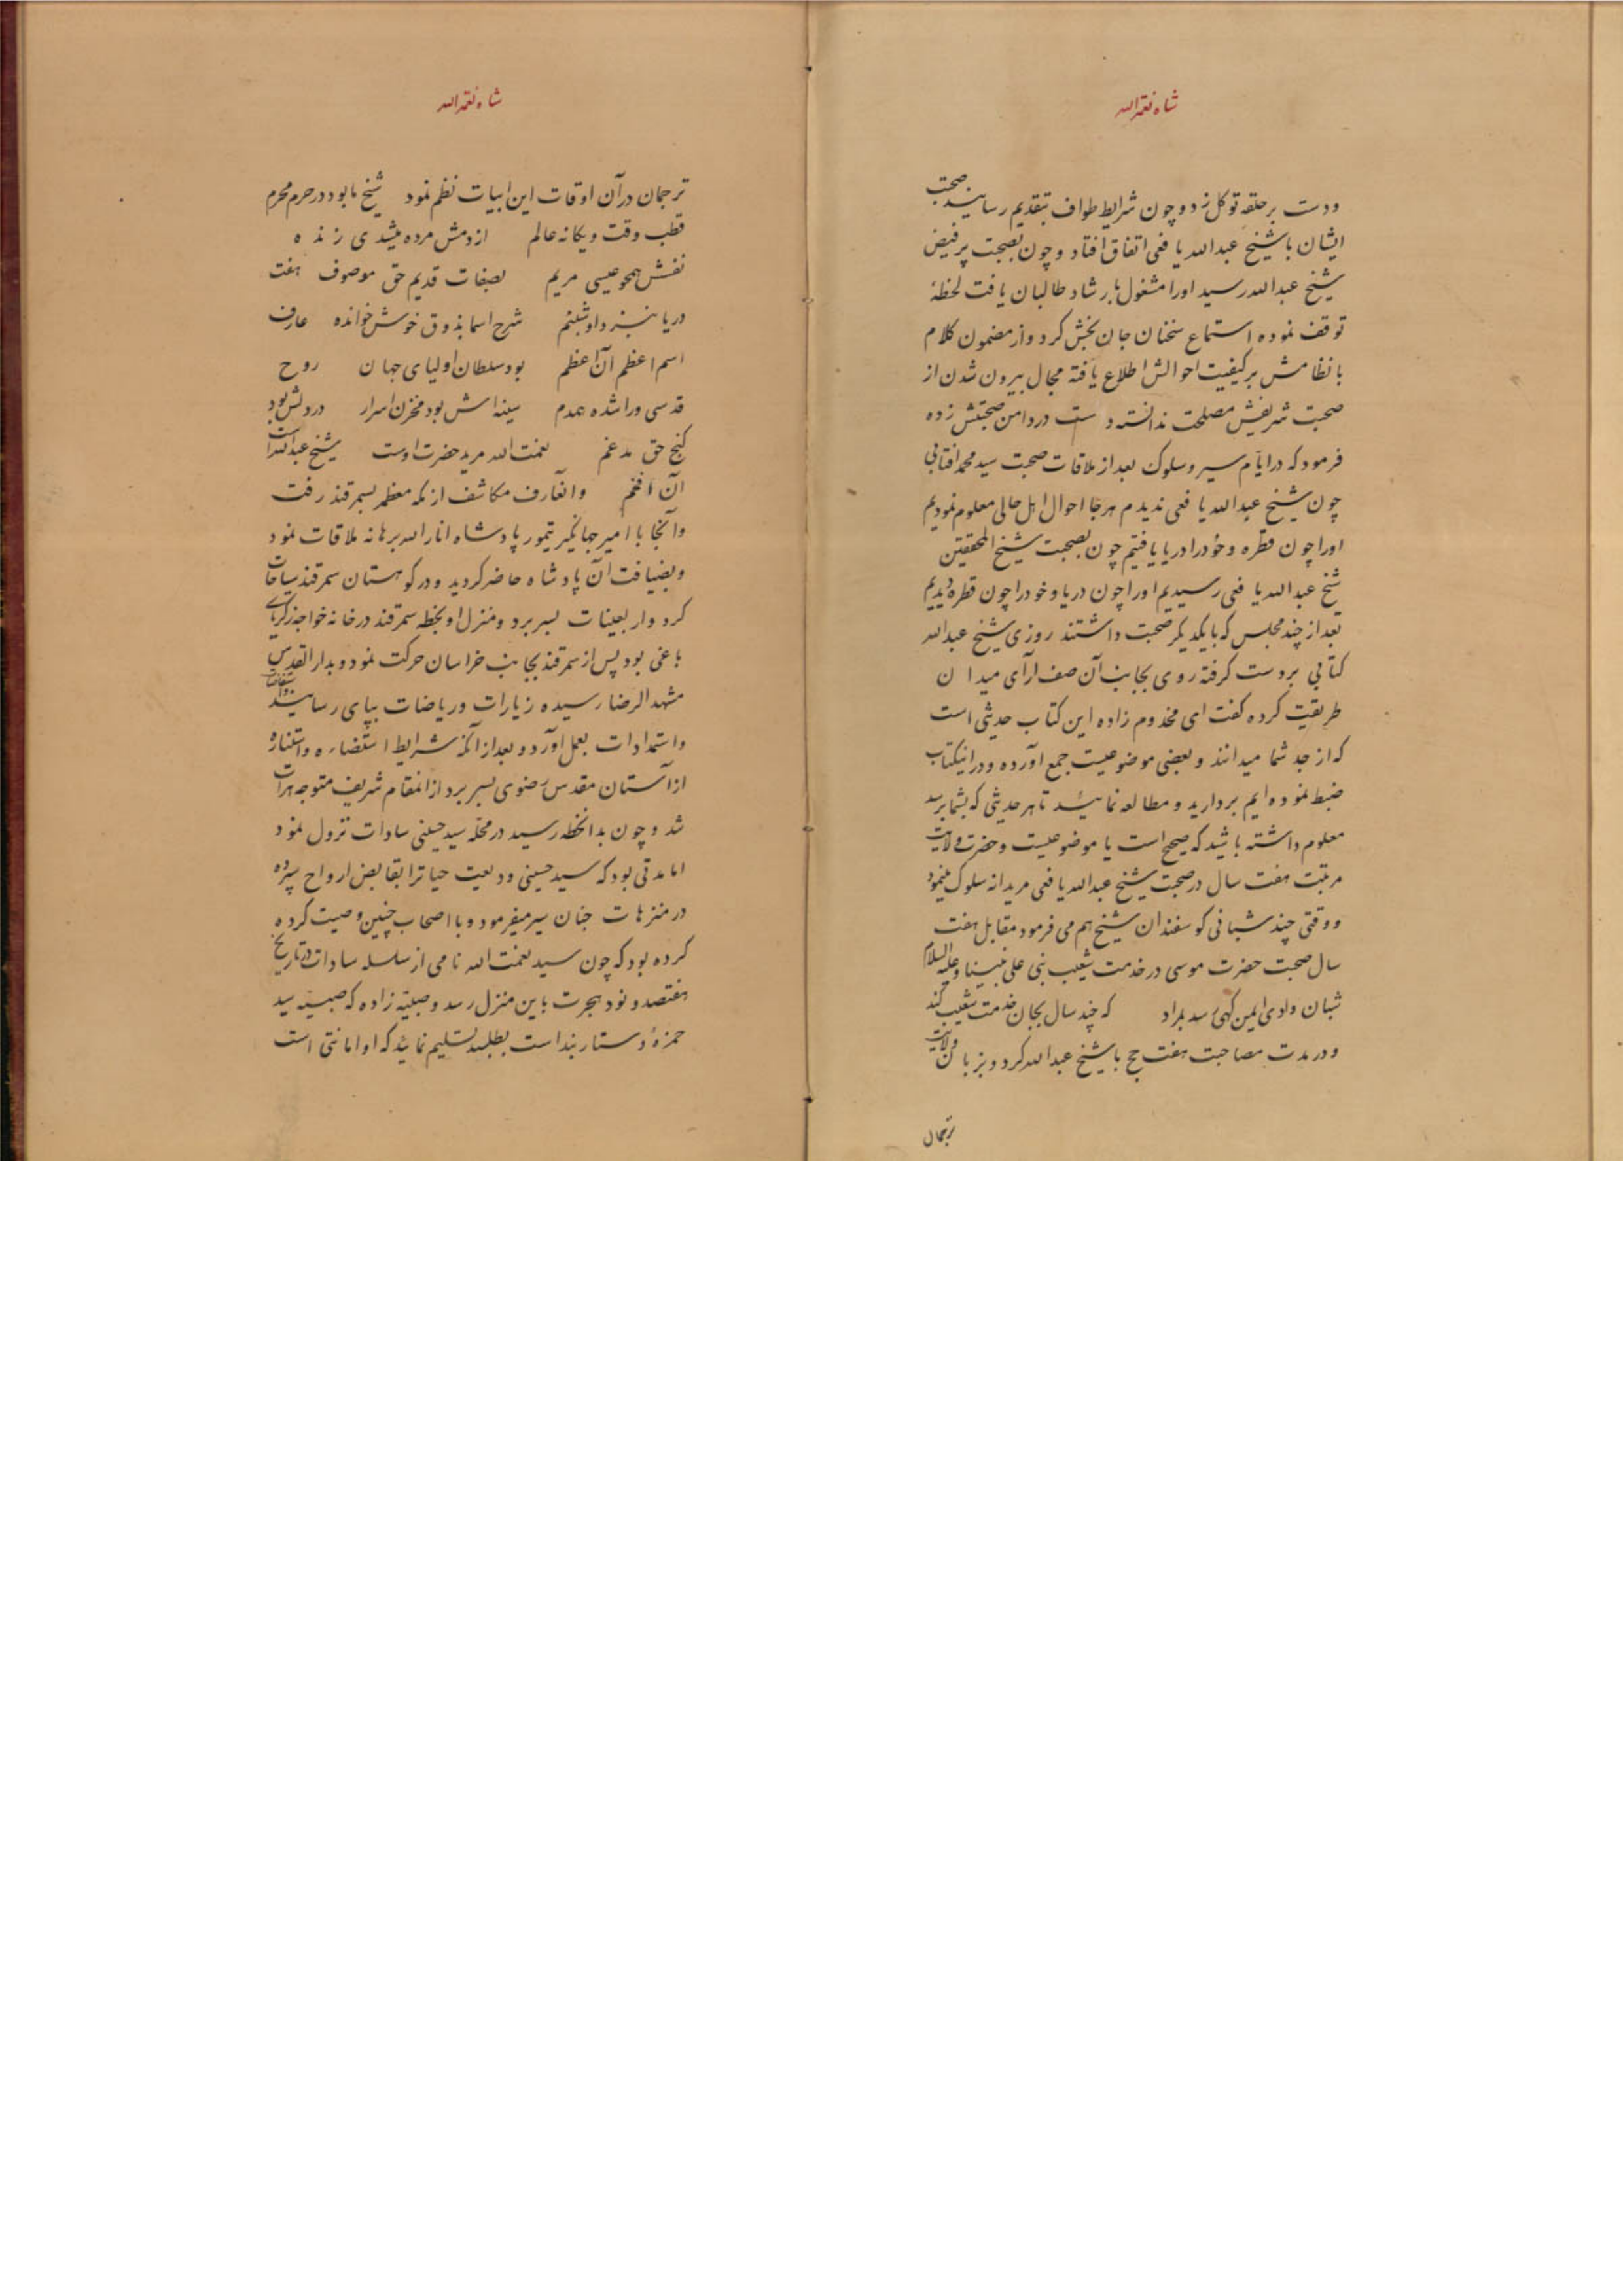 شاه نعمة الله
ودست بر حلقهٔ توکل زد و چون شرایط طواف بتقدیم رسانید صحبت
ایشان با شیخ عبدالله یافعی اتفاق افتاد و چون بصحبت پرفیض
شیخ عبدالله رسید اورا مشغول بارشاد طالبان یافت لحظهٔ
توقف نموده استماع سخنان جان بخش کرد و از مضمون کلام
با نظامش بر کیفیت احوالش اطلاع یافته مجال بیرون شدن از
صحبت شریفش مصلحت ندانسته دست در دامن صحبتش زده
فرمود که در ایام سیر و سلوک بعد از ملاقات صحبت سید محمد اقتابی
چون شیخ عبدالله یافعی ندیدم هر جا احوال اهل حالی معلوم نمودیم
اورا چون قطره و خود را دریا یافتیم چون بصحبت شیخ المحققین
شیخ عبدالله یافعی رسیدیم اورا چون دریا و خود را چون قطره دیدیم
بعد از چند مجلس که با یکدیکر صحبت داشتند روزی شیخ عبدالله
کتابی بر دست کرفته روی بجانب آن صف آرای میدان
طریقت کرده کفت ای مخدوم زاده این کتاب حدیثی است
که از جد شما میدانند و بعضی موضوعیست جمع آورده و در اینکتاب
ضبط نموده ایم بردارید و مطالعه نمائید تا هر حدیثی که بشما برسد
معلوم داشته باشید که صحیح است یا موضوعیست و حضرت ولایت
مرتبت هفت سال در صحبت شیخ عبدالله یافعی مریدانه سلوک مینمود
و وقتی چند شبانی کوسفندان شیخ هم می فرمود مقابل هفت
سال صحبت حضرت موسی در خدمت شعیب نبی علی نبینا و علیه السلام
شبان وادی ایمن کهی رسد بمراد که چند سال بجان خدمت شعیب کند
و در مدت مصاحبت هفت حج با شیخ عبدالله کرد و بزبان ولایت
ترجمان
شاه نعمة الله
ترجمان در آن اوقات این ابیات نظم نمود شیخ ما بود در حرم محرم
قطب وقت و یکانه عالم از دمش مرده میشدی زنده
نفسش همچو عیسی مریم بصفات قدیم حق موصوف هفت
دریا بنزد او شبنم شرح اسما بذوق خوش خوانده عارف
اسم اعظم آن اعظم بود سلطان اولیای جهان روح
قدسی ورا شده همدم سینه اش بود مخزن اسرار در دلش بود
کنج حق مدغم نعمت الله مرید حضرت اوست شیخ عبدالله است
آن افخم و انعارف مکاشف از مکه معظمه بسمرقند رفت
و آنجا با امیر جهانکیر تیمور پادشاه انار الله برهانه ملاقات نمود
و بضیافت آن پادشاه حاضر کردید و در کوهستان سمرقند سیاحات
کرد و اربعینات بسر برد و منزل او بخطه سمرقند در خانه خواجه زکریای
باغی بود پس از سمرقند بجانب خراسان حرکت نمود و بدار القدس
مشهد الرضا رسیده زیارات و ریاضات بپای رسانید
و استمدادات بعمل آورد و بعد از آنکه شرایط استضاءه و استناره
از آستان مقدس رضوی بسر برد از انمقام شریف متوجه هرات
شد و چون بدانخطه رسید در محله سید حسینی سادات نزول نمود
اما مدتی بود که سید حسینی ودیعت حیات را بقابض ارواح سپرده
در منزهات جنان سیر میفرمود و با اصحاب چنین وصیت کرده
کرده بود که چون سید نعمت الله نامی از سلسله سادات در تاریخ
هفتصد و نود هجرت باین منزل رسد وصلبیه زاده که صبیه سید
حمزهٔ دستاربند است بطلبد تسلیم نمائید که او امانتی است